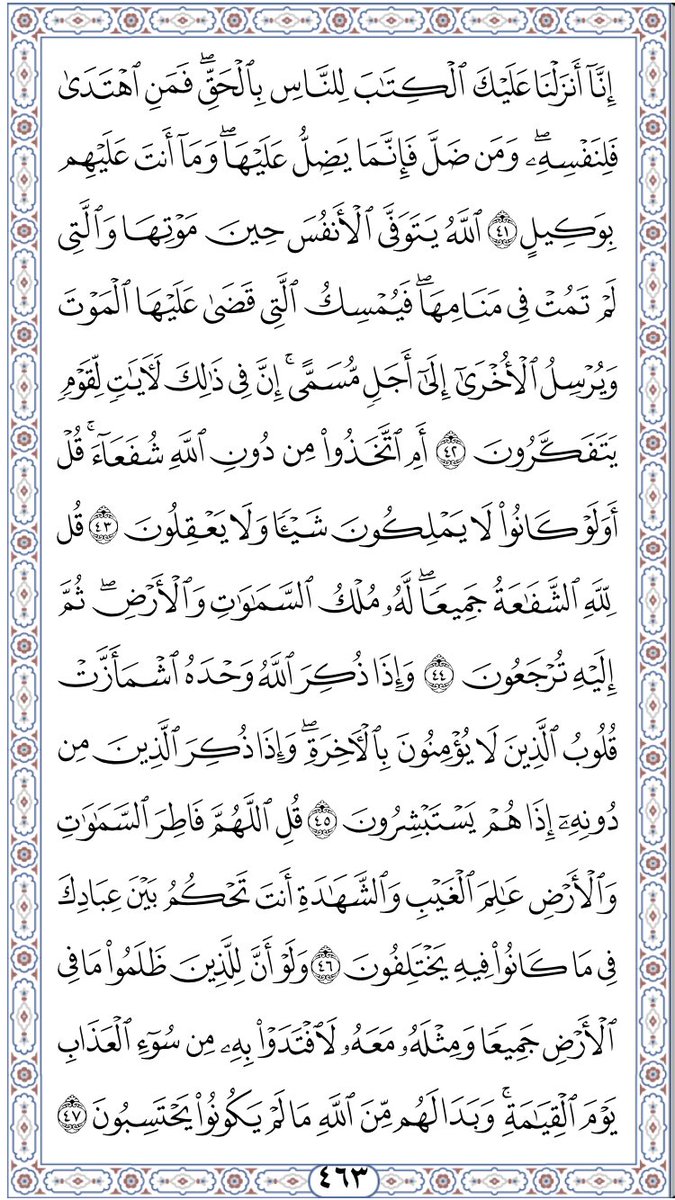 إِنَّآ أَنزَلْنَا عَلَيْكَ ٱلْكِتَٰبَ لِلنَّاسِ بِٱلْحَقِّ ۖ فَمَنِ ٱهْتَدَىٰ
فَلِنَفْسِهِۦ ۖ وَمَن ضَلَّ فَإِنَّمَا يَضِلُّ عَلَيْهَا ۖ وَمَآ أَنتَ عَلَيْهِم
بِوَكِيلٍ ٤١ ٱللَّهُ يَتَوَفَّى ٱلْأَنفُسَ حِينَ مَوْتِهَا وَٱلَّتِى
لَمْ تَمُتْ فِى مَنَامِهَا ۖ فَيُمْسِكُ ٱلَّتِى قَضَىٰ عَلَيْهَا ٱلْمَوْتَ
وَيُرْسِلُ ٱلْأُخْرَىٰٓ إِلَىٰٓ أَجَلٍ مُّسَمًّى ۚ إِنَّ فِى ذَٰلِكَ لَءَايَٰتٍ لِّقَوْمٍ
يَتَفَكَّرُونَ ٤٢ أَمِ ٱتَّخَذُوا۟ مِن دُونِ ٱللَّهِ شُفَعَآءَ ۚ قُلْ
أَوَلَوْ كَانُوا۟ لَا يَمْلِكُونَ شَيْـًٔا وَلَا يَعْقِلُونَ ٤٣ قُل
لِّلَّهِ ٱلشَّفَٰعَةُ جَمِيعًا ۖ لَّهُۥ مُلْكُ ٱلسَّمَٰوَٰتِ وَٱلْأَرْضِ ۖ ثُمَّ
إِلَيْهِ تُرْجَعُونَ ٤٤ وَإِذَا ذُكِرَ ٱللَّهُ وَحْدَهُ ٱشْمَأَزَّتْ
قُلُوبُ ٱلَّذِينَ لَا يُؤْمِنُونَ بِٱلْءَاخِرَةِ ۖ وَإِذَا ذُكِرَ ٱلَّذِينَ مِن
دُونِهِۦٓ إِذَا هُمْ يَسْتَبْشِرُونَ ٤٥ قُلِ ٱللَّهُمَّ فَاطِرَ ٱلسَّمَٰوَٰتِ
وَٱلْأَرْضِ عَٰلِمَ ٱلْغَيْبِ وَٱلشَّهَٰدَةِ أَنتَ تَحْكُمُ بَيْنَ عِبَادِكَ
فِى مَا كَانُوا۟ فِيهِ يَخْتَلِفُونَ ٤٦ وَلَوْ أَنَّ لِلَّذِينَ ظَلَمُوا۟ مَا فِى
ٱلْأَرْضِ جَمِيعًا وَمِثْلَهُۥ مَعَهُۥ لَٱفْتَدَوْا۟ بِهِۦ مِن سُوٓءِ ٱلْعَذَابِ
يَوْمَ ٱلْقِيَٰمَةِ ۚ وَبَدَا لَهُم مِّنَ ٱللَّهِ مَا لَمْ يَكُونُوا۟ يَحْتَسِبُونَ ٤٧
٤٦٣